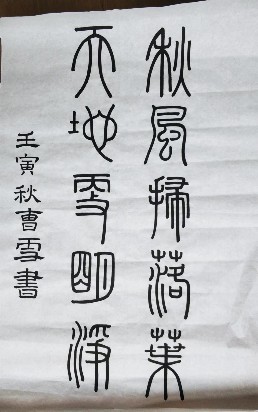 秋風掃落葉
天地更明淨
壬寅秋曹雪書